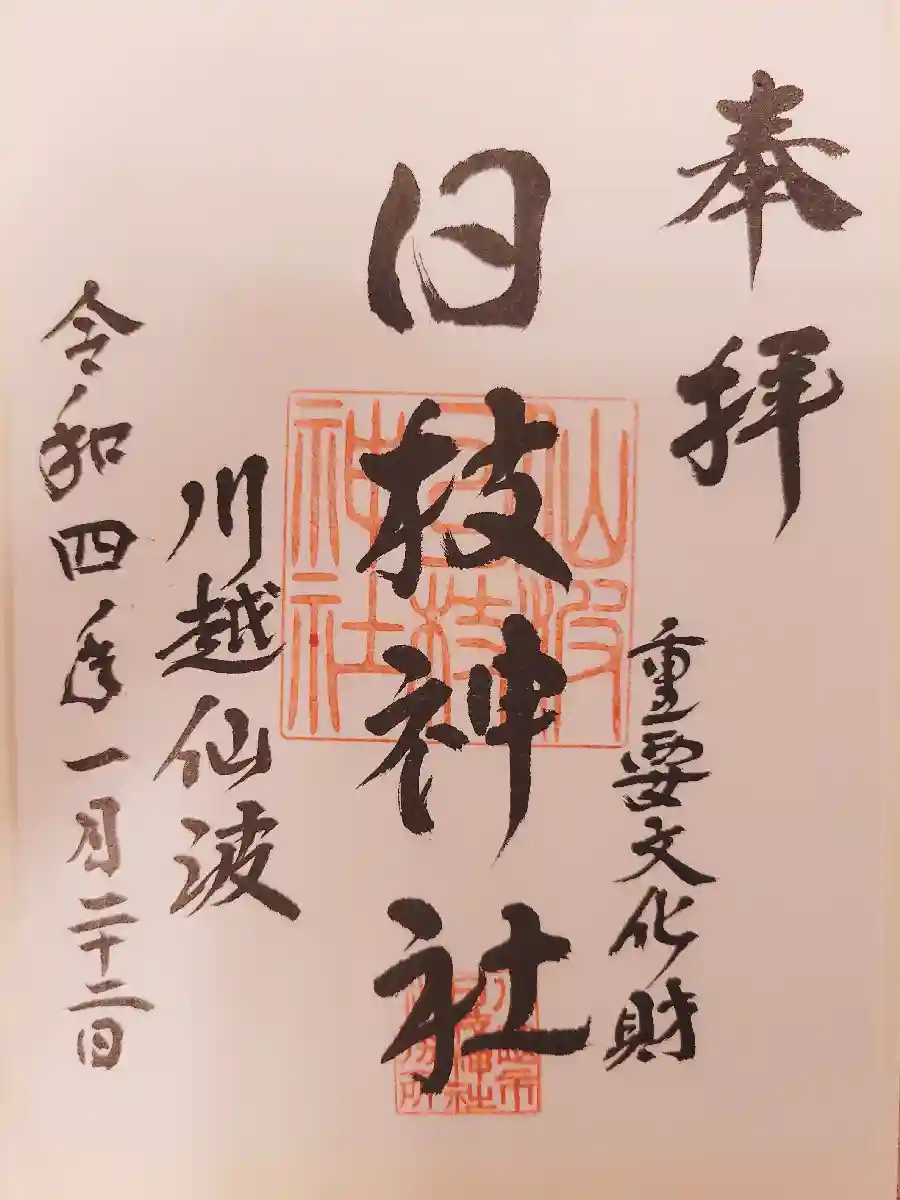 奉拝
重要文化財
日枝神社
仙波
日枝
神社
川越仙波
令和四年一月二十二日